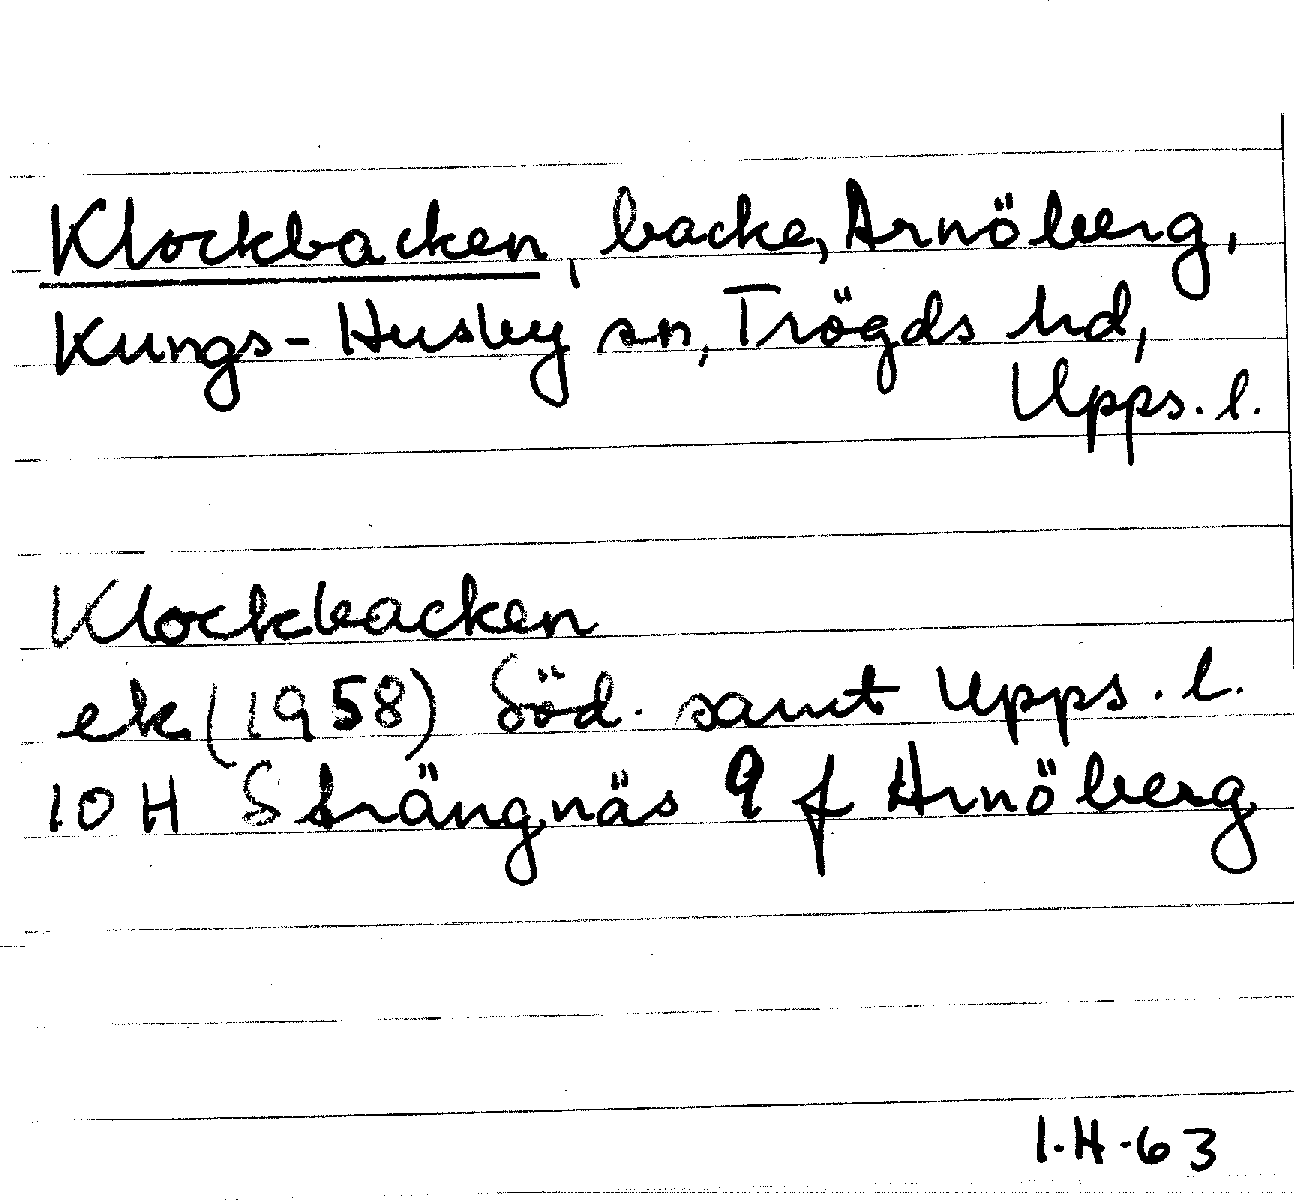 Klockbacken, backe, Arnöberg,
Kungs-Husby sn, Trögds hd,
Upps. l.
Klockbacken
ek (1958) Söd. samt Upps. l.
10 H Strängnäs 9 f Arnöberg
I.H-63